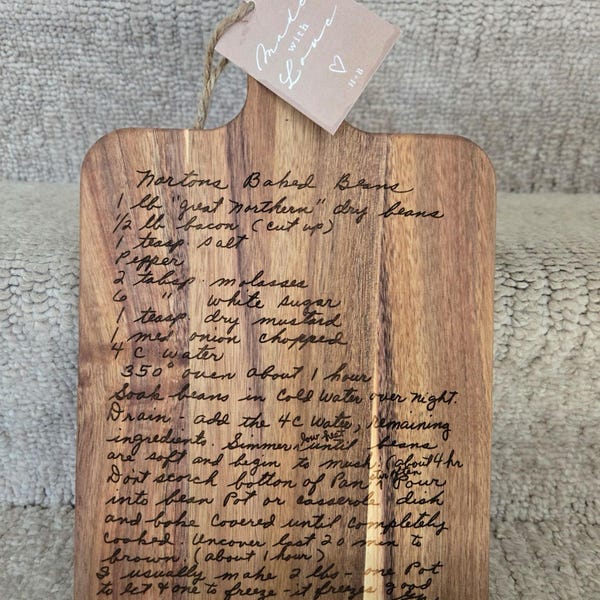 Made
with
Love
H+B
Nortons Baked Beans
1 lb "great northern" dry beans
1/2 lb bacon (cut up)
1 teasp salt
Pepper
2 tabsp. molasses
6 " white sugar
1 teasp. dry mustard
1 med onion chopped
4 C water
350° oven about 1 hour
Soak beans in cold water over night.
Drain - add the 4C water, remaining
ingredients. Simmer low heat until beans
are soft and begin to mush. (about 4 hr
Don't scorch bottom of Pan. Pour
into bean Pot or casserole dish
and bake covered until completely
cooked. Uncover last 20 min to
brown (about 1 hour)
I usually make 2 lbs - one Pot
to eat & one to freeze - it freezes good